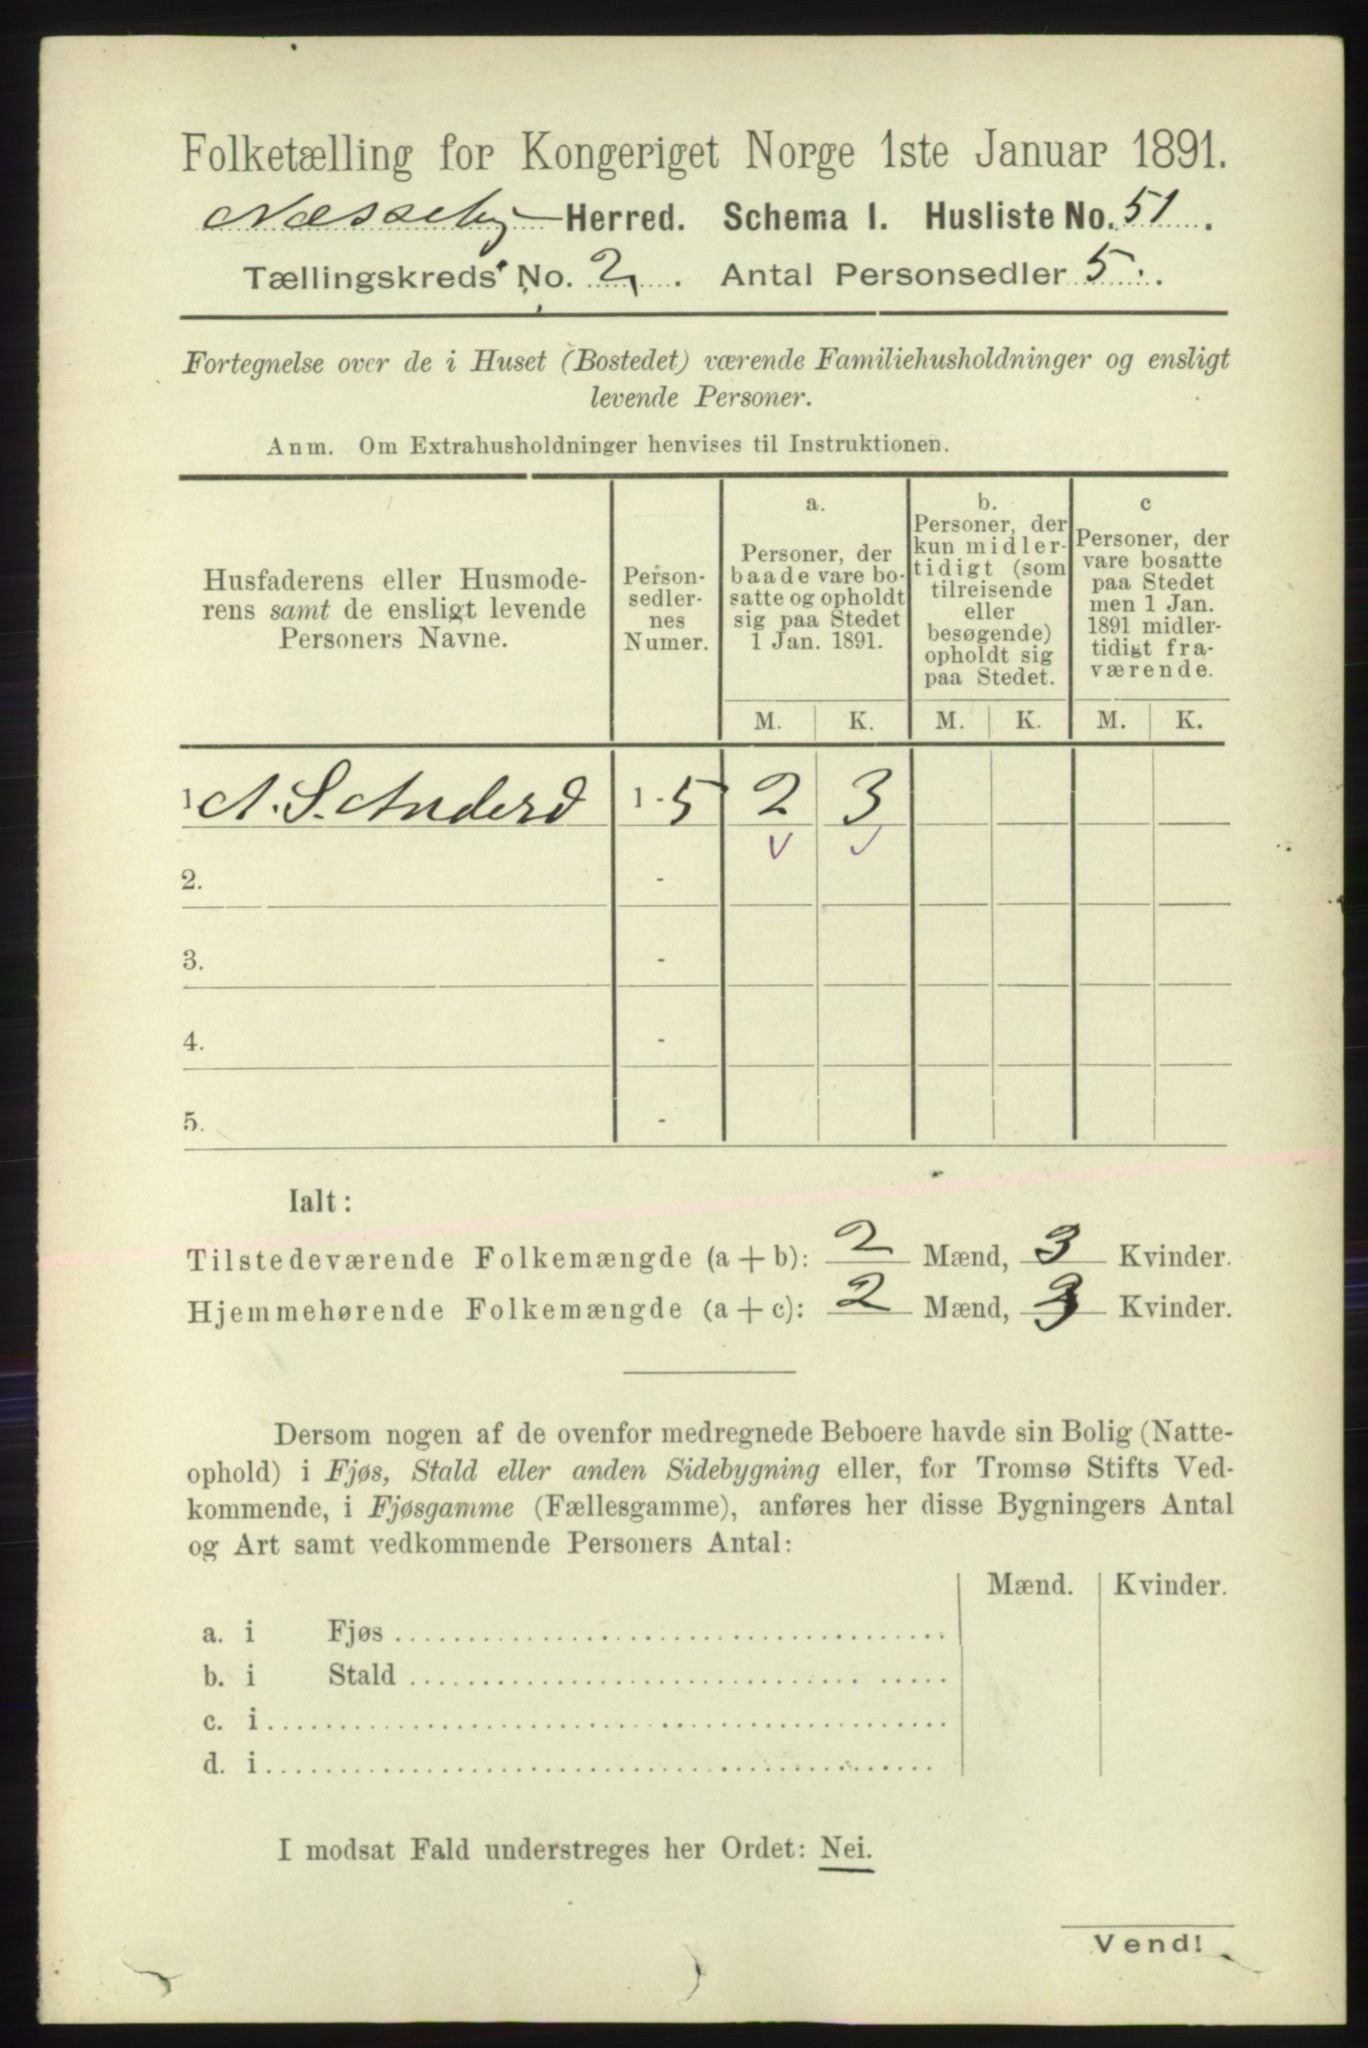 Folketælling for Kongeriget Norge 1ste Januar 1891.
Næsseby Herred. Schema I. Husliste No. 51.
Tællingskreds No. 2. Antal Personsedler 5.
Fortegnelse over de i Huset (Bostedet) værende Familiehusholdninger og ensligt
levende Personer.
Anm. Om Extrahusholdninger henvises til Instruktionen.
Husfaderens eller Husmode-
rens samt de ensligt levende
Personers Navne.
Person-
sedler-
nes
Numer.
a.
Personer, der
baade vare bo-
satte og opholdt
sig paa Stedet
1 Jan. 1891.
b.
Personer, der
kun midler-
tidigt (som
tilreisende
eller
besøgende)
opholdt sig
paa Stedet.
c
Personer, der
vare bosatte
paa Stedet
men 1 Jan.
1891 midler-
tidigt fra-
værende.
M. K. M. K. M. K.
1 A. S. Andersd 1-5 2 3
2. -
3. -
4. -
5. -
Ialt:
Tilstedeværende Folkemængde (a + b): 2 Mænd, 3 Kvinder.
Hjemmehørende Folkemængde (a + c): 2 Mænd, 3 Kvinder.
Dersom nogen af de ovenfor medregnede Beboere havde sin Bolig (Natte-
ophold) i Fjøs, Stald eller anden Sidebygning eller, for Tromsø Stifts Ved-
kommende, i Fjøsgamme (Fællesgamme), anføres her disse Bygningers Antal
og Art samt vedkommende Personers Antal:
Mænd. Kvinder.
a. i Fjøs
b. i Stald
c. i
d. i
I modsat Fald understreges her Ordet: Nei.
Vend!